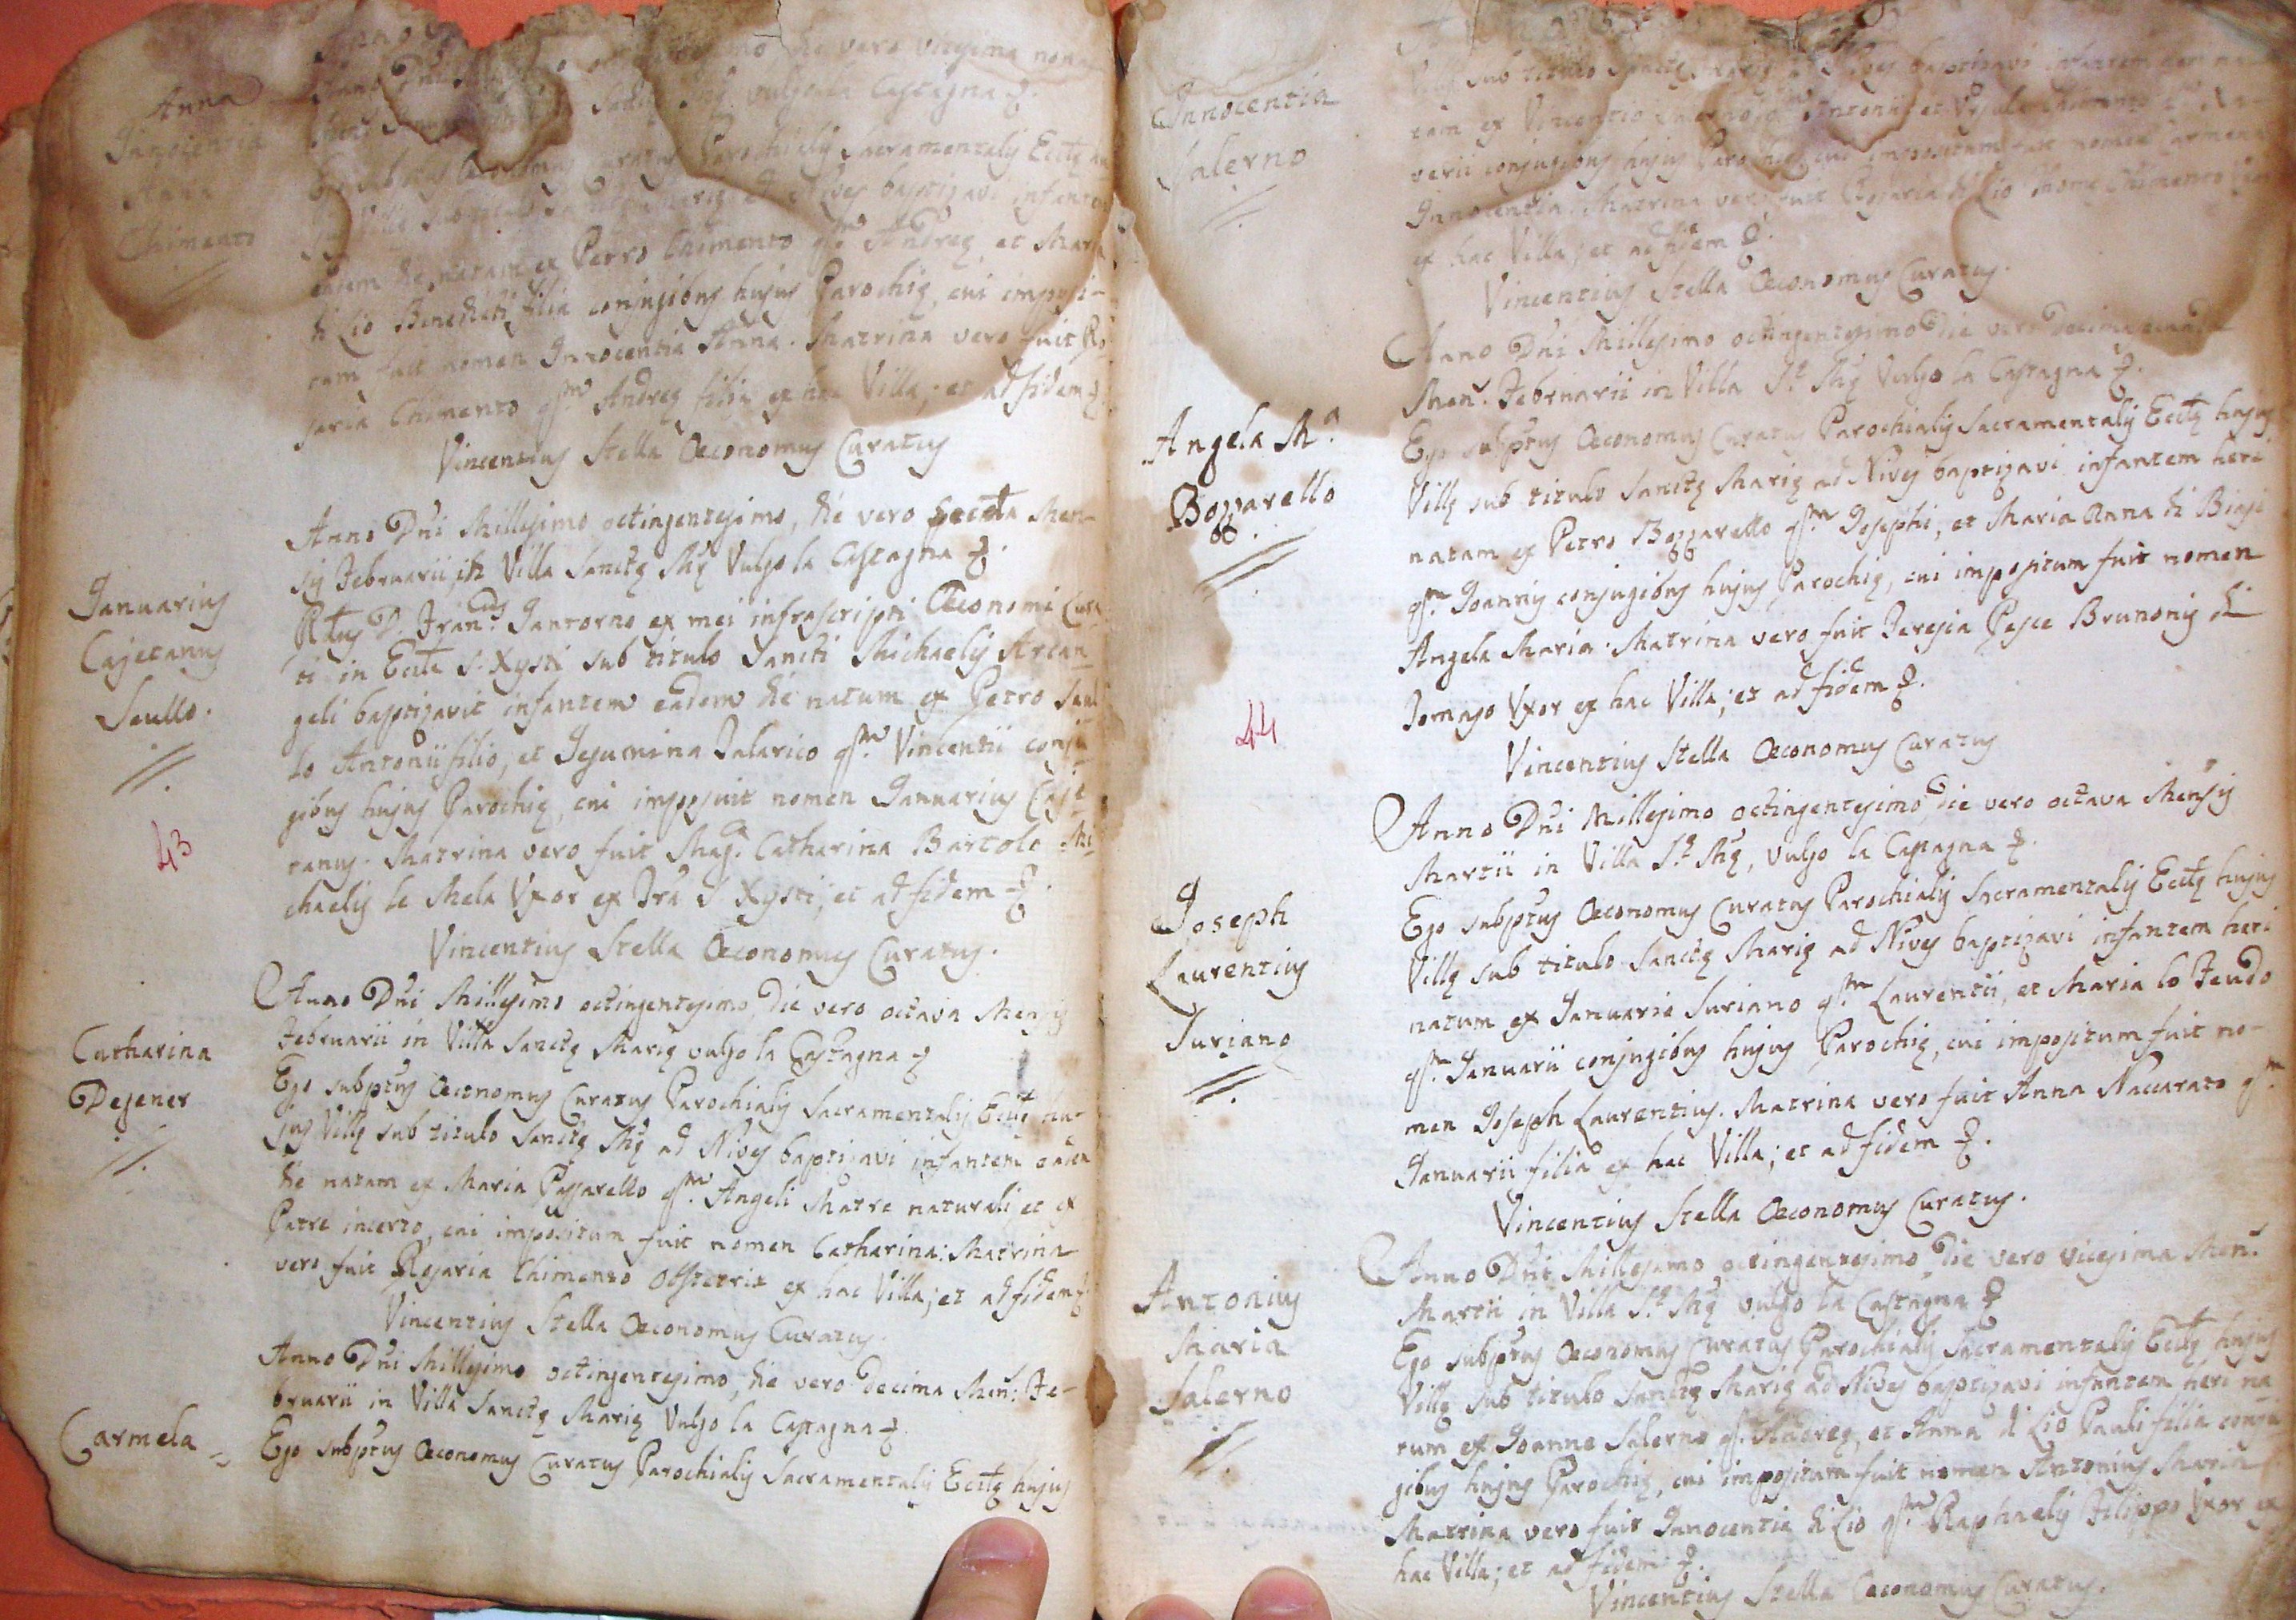 Anna
Innocentia
Anna
Chimento
Anno Dni die vero vicesima nona
vulgo la Castagna
Curatus Parochialis Sacramentalis Eccltę
baptizavi infantem
eadem die natam ex Petro Chimento qm. Andreę, et Maria
di Lio Benedicti filia conjugibus hujus Parochię, cui imposi-
tum fuit nomen Innocentia Anna. Matrina vero fuit Ro
saria Chimento qm. Andreę filia ex hac Villa; et ad fidem
Vincentius Stella Œconomus Curatus
Januarius
Cajetanus
Saullo.
43
Anno Dni Millesimo octingentesimo, die vero Men-
sis Februarii, in Villa Sanctę Mę Vulgo la Castagna
Rtus D. Fran.cus Jantorno ex mei infrascripti Œconomi Cura
ti in Eccta S. Xysti sub titulo Sancti Michaelis Arcan
geli baptizavit infantem eadem die natum ex Petro Saul
lo Antonii filio, et Jesumina Talarico qm. Vincentii conju
gibus hujus Parochię, cui imposuit nomen Januarius Caje
tanus. Matrina vero fuit Mag.a Catharina Bartolo Mi
chaelis le Mela Uxor ex Trā S. Xysti; et ad fidem
Vincentius Stella Œconomus Curatus.
Catharina
Degener
Anno Dni Millesimo octingentesimo, Die vero octava Mensis
Februarii in Villa Sanctę Marię vulgo la Castagna
Ego subptus Œconomus Curatus Parochialis Sacramentalis Eccltę hu-
jus Villę sub titulo Sanctę Mę ad Nives baptizavi infantem eadem
die natam ex Maria Passarello qm. Angeli Matre naturali, et ex
Patre incerto, cui impositum fuit nomen Catharina: Matrina
vero fuit Rosaria Chimento Obstetrix ex hac Villa; et ad fidem
Vincentius Stella Œconomus Curatus.
Carmela
Anno Dni Millesimo octingentesimo, die vero decima Men: Fe-
bruarii in Villa Sanctę Marię Vulgo la Castagna
Ego subptus Œconomus Curatus Parochialis Sacramentalis Eccltę hujus
Innocentia
Salerno
Villę sub titulo Sanctę Marię ad Nives baptizavi infantem heri na
tam ex Vincentio Salerno qm. Antonii, et Ursula
verii conjugibus hujus Parochię, cui impositum fuit nomen Carmela
Innocentia. Matrina vero fuit Rosaria di Lio Thomę Chimento
ex hac Villa; et ad fidem
Vincentius Stella Œconomus Curatus.
Angela M.a
Bozzarello
44
Anno Dni Millesimo octingentesimo Die vero decima
Men. Februarii in Villa S.ę Mę Vulgo la Castagna
Ego subptus Œconomus Curatus Parochialis Sacramentalis Eccltę hujus
Villę sub titulo Sanctę Marię ad Nives baptizavi infantem heri
natam ex Petro Bozzarello qm. Josephi, et Maria Anna di Biasi
qm. Joannis conjugibus hujus Parochię, cui impositum fuit nomen
Angela Maria. Matrina vero fuit Teresia Pesce Brunonis di
Tomaso Uxor ex hac Villa; et ad fidem
Vincentius Stella Œconomus Curatus
Joseph
Laurentius
Suriano
Anno Dni Millesimo octingentesimo, Die vero octava Mensis
Martii in Villa S.ę Mę, vulgo la Castagna
Ego subptus Œconomus Curatus Parochialis Sacramentalis Eccltę hujus
Villę sub titulo Sanctę Marię ad Nives baptizavi infantem heri
natum ex Januario Suriano qm. Laurentii, et Maria lo Feudo
qm. Januarii conjugibus hujus Parochię, cui impositum fuit no-
men Joseph Laurentius. Matrina vero fuit Anna Naccarato qm
Januarii filia ex hac Villa; et ad fidem
Vincentius Stella Œconomus Curatus.
Antonius
Maria
Salerno
Anno Dni Millesimo octingentesimo, Die vero vicesima Men.
Martii in Villa S.ę Mę vulgo la Castagna
Ego subptus Œconomus Curatus Parochialis Sacramentalis Eccltę hujus
Villę sub titulo Sanctę Marię ad Nives baptizavi infantem heri na
tum ex Joanne Salerno qm. Andreę, et Anna di Lio Pauli filia conju
gibus hujus Parochię, cui impositum fuit nomen Antonius Maria
Matrina vero fuit Innocentia di Lio qm. Raphaelis Filippo Uxor ex
hac Villa; et ad fidem
Vincentius Stella Œconomus Curatus.